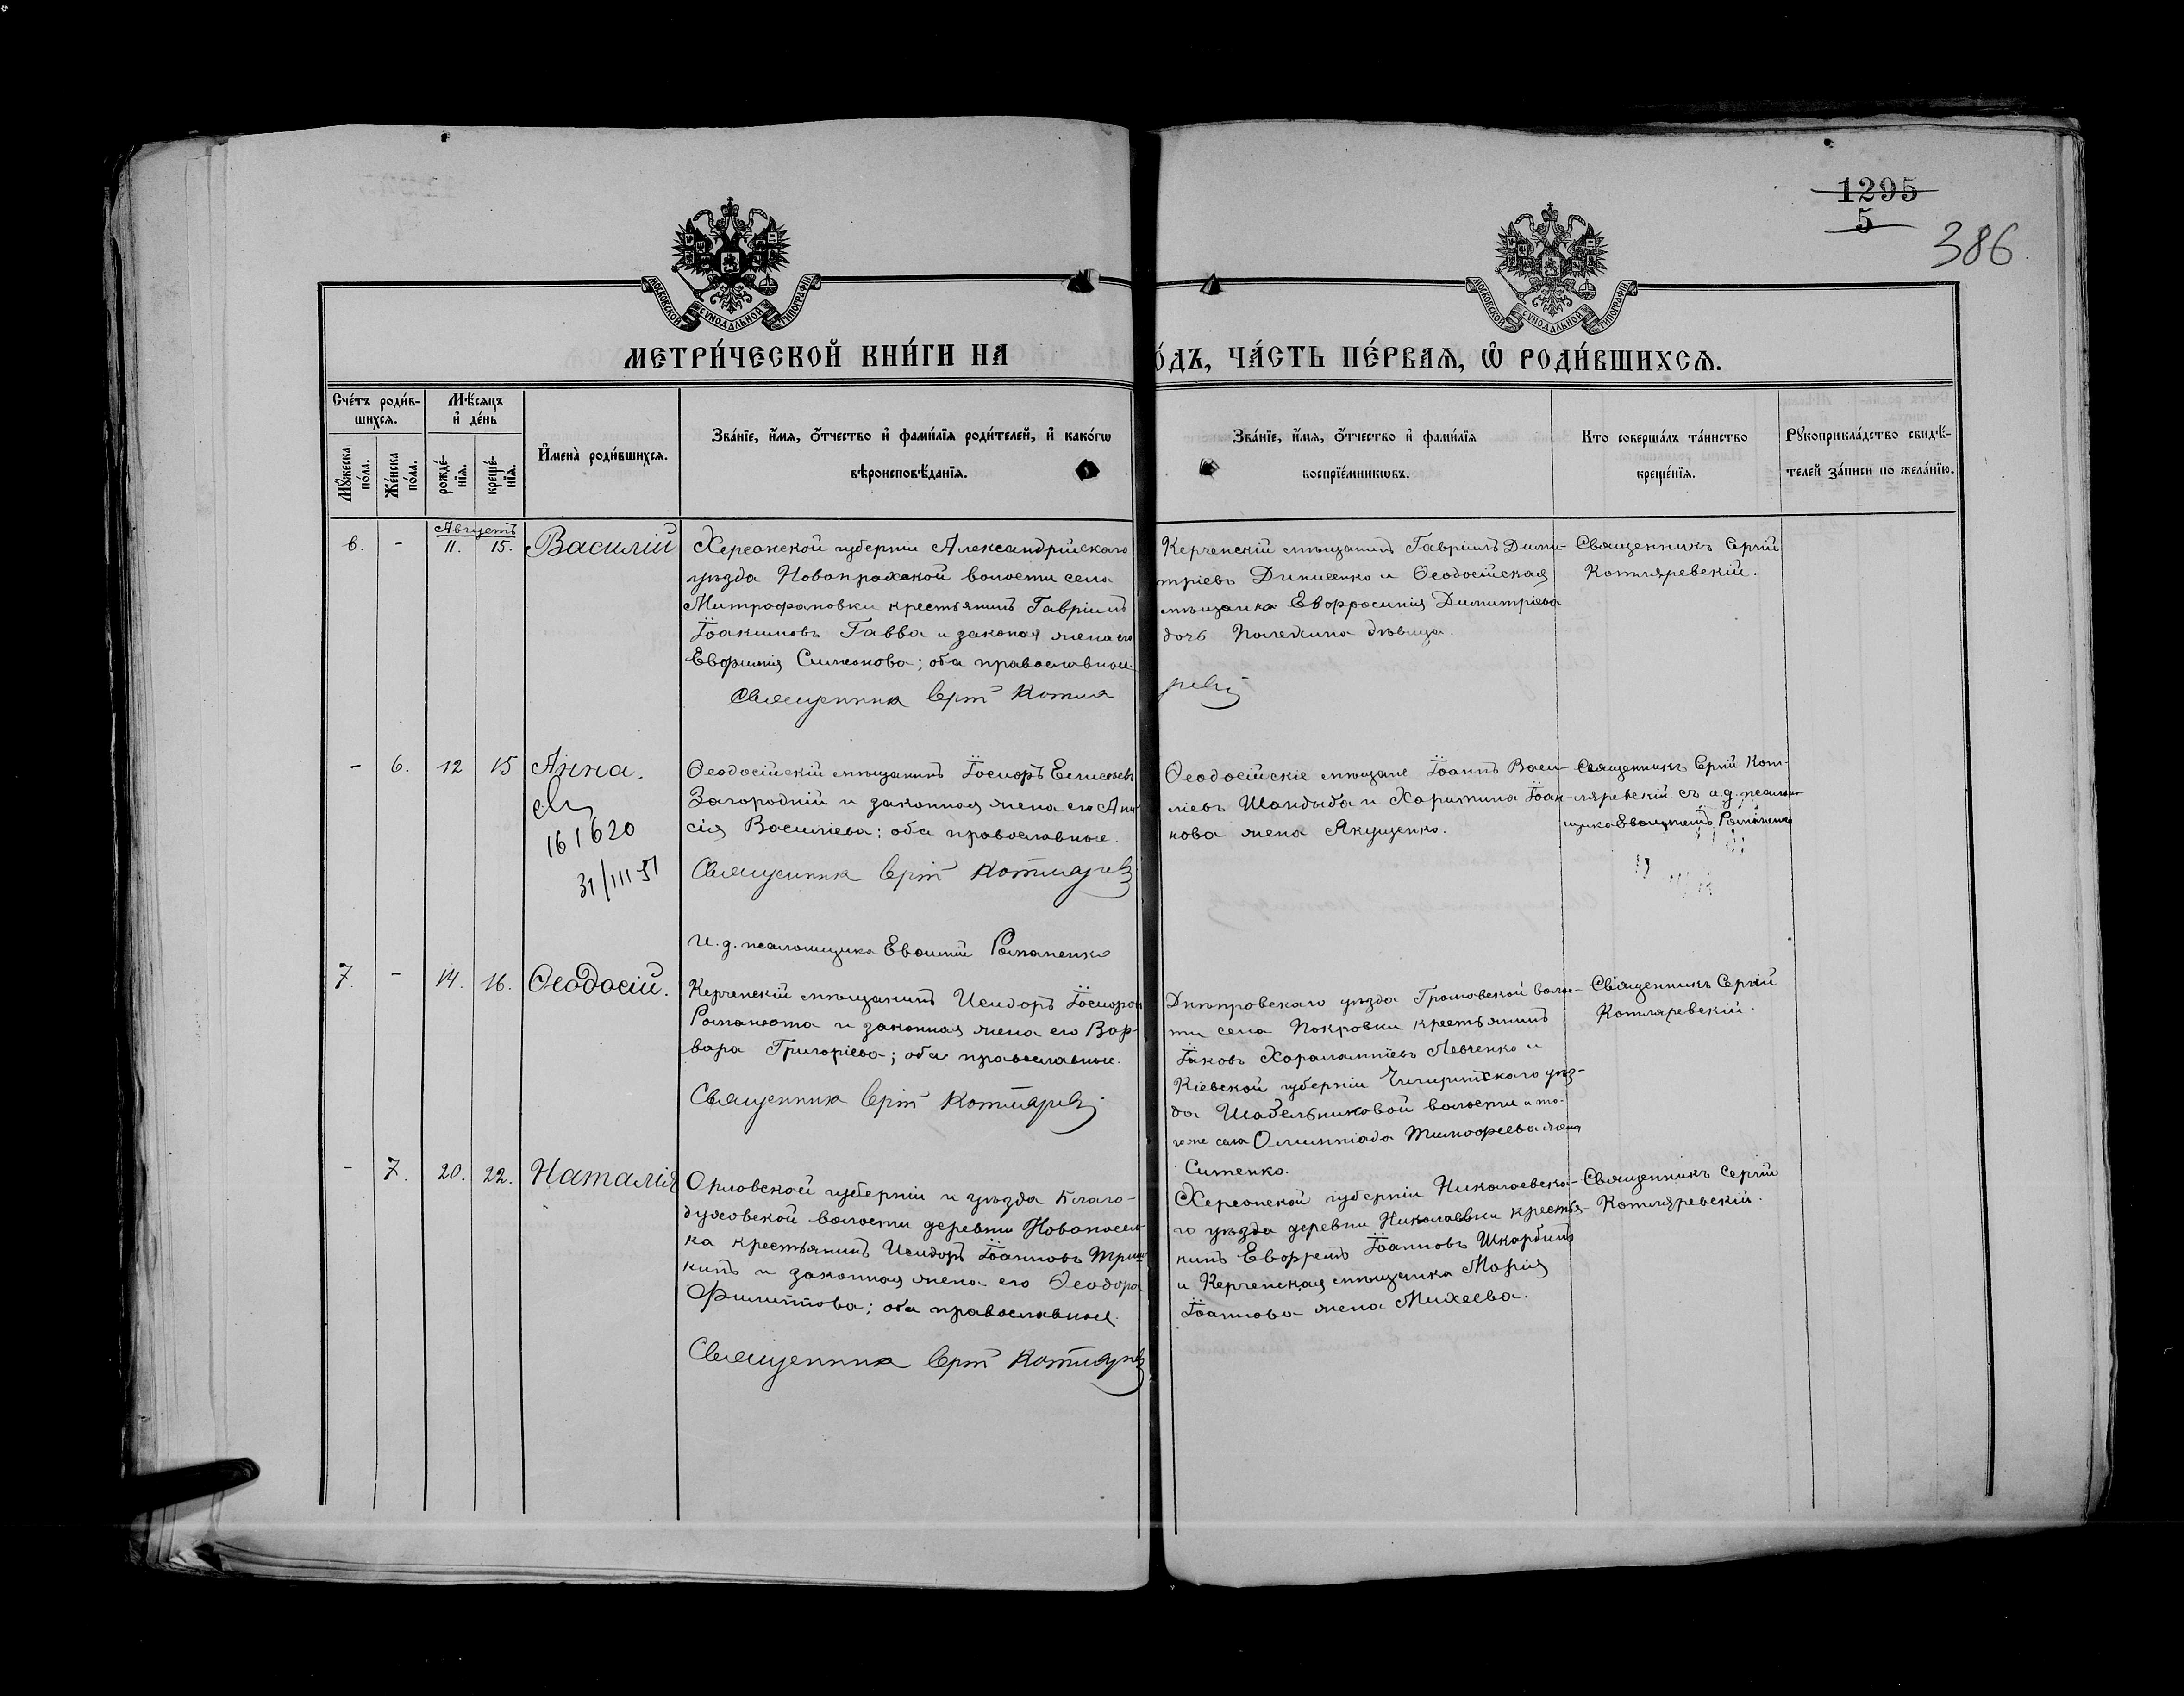 1295
5
386
МОСКОВСКОЙ СѴНОДАЛЬНОЙ ТИПОГРАФІИ
МОСКОВСКОЙ СѴНОДАЛЬНОЙ ТИПОГРАФІИ
МЕТРИ́ЧЕСКОЙ КНИ́ГИ НА
О́ДЪ, ЧА́СТЬ ПЕ́РВАЯ, Ѡ҆ РОДИ́ВШИХСЯ.
Сче́тъ роди́в-
шихся.
Мѣ́сяцъ
и҆ де́нь
Мꙋ́жеска по́ла.
Же́нска по́ла.
рожде́-
нїя.
креще́-
нїя.
И҆мена̀ роди́вшихся.
Зва́нїе, и҆́мя, ѻ҆́тчество и҆ фами́лїя роди́телей, и҆ како́гѡ
вѣроисповѣ́данїя.
Зва́нїе, и҆́мя, ѻ҆́тчество и҆ фами́лїя
воспрїе́мникѡвъ.
Кто соверша́лъ та́инство
креще́нїя.
Рꙋкоприкла́дство свидѣ́-
телей за́писи по жела́нїю.
Августъ
6. - 11. 15. Василій
Херсонской губерніи Александрійскаго
уѣзда Новопражской волости села
Митрофановки крестьянинъ Гавріилъ
Іоакимовъ Гавва и законая жена его
Евфимія Симеонова; оба православные
Священникъ Сергій Котля
ревскій
Керченскій мѣщанинъ Гавріилъ Дими-
тріевъ Динисенко и Ѳеодосійская
мѣщанка Евфросинія Димитріева
дочь Палехина дѣвица.
Священникъ Сергій
Котляревскій.
- 6. 12 15 Анна.
161620
31/III-51
Ѳеодосійскій мѣщанинъ Іосифъ Елисѣевъ
Загородній и законная жена его Ани
сія Василіева; оба православные.
Священникъ Сергій Котляревскій
И. д. псаломщика Евѳимій Романенко
Ѳеодосійскіе мѣщане Іоаннъ Васи-
ліевъ Шандыба и Харитина Іоан-
нова жена Якущенко.
Священникъ Сергій Кот-
ляревскій съ и.д. псалом-
щика Романенко
7. - 14. 16. Ѳеодосій.
Керченскій мѣщанинъ Исидоръ Іосифовъ
Романюта и законная жена его Вар-
вара Григоріева; оба православные.
Священникъ Сергій Котляревскій
Днѣпровскаго уѣзда Громовской волос-
ти села Покровки крестьянинъ
Іаковъ Харалампіевъ Левченко и
Кіевской губерніи Чигиринскаго уѣз-
да Шабельниковой волости и то-
гоже села Олимпіада Тимофеева жена
Ситенко.
Священникъ Сергій
Котляревскій.
- 7. 20. 22. Наталія
Орловской губерніи и уѣзда Благо-
духовской волости деревни Новопосел-
ка крестьянинъ Исидоръ Іоанновъ Триш
кинъ и законная жена его Ѳеодора
Филиппова; оба православныя.
Священникъ Сергій Котляревскій
Херсонской губерніи Николаевска-
го уѣзда деревни Николаевки крестья-
нинъ Евфремъ Іоанновъ Шкарбинъ
и Керченская мѣщанка Марія
Іоаннова жена Михеева.
Священникъ Сергій
Котляревскій.